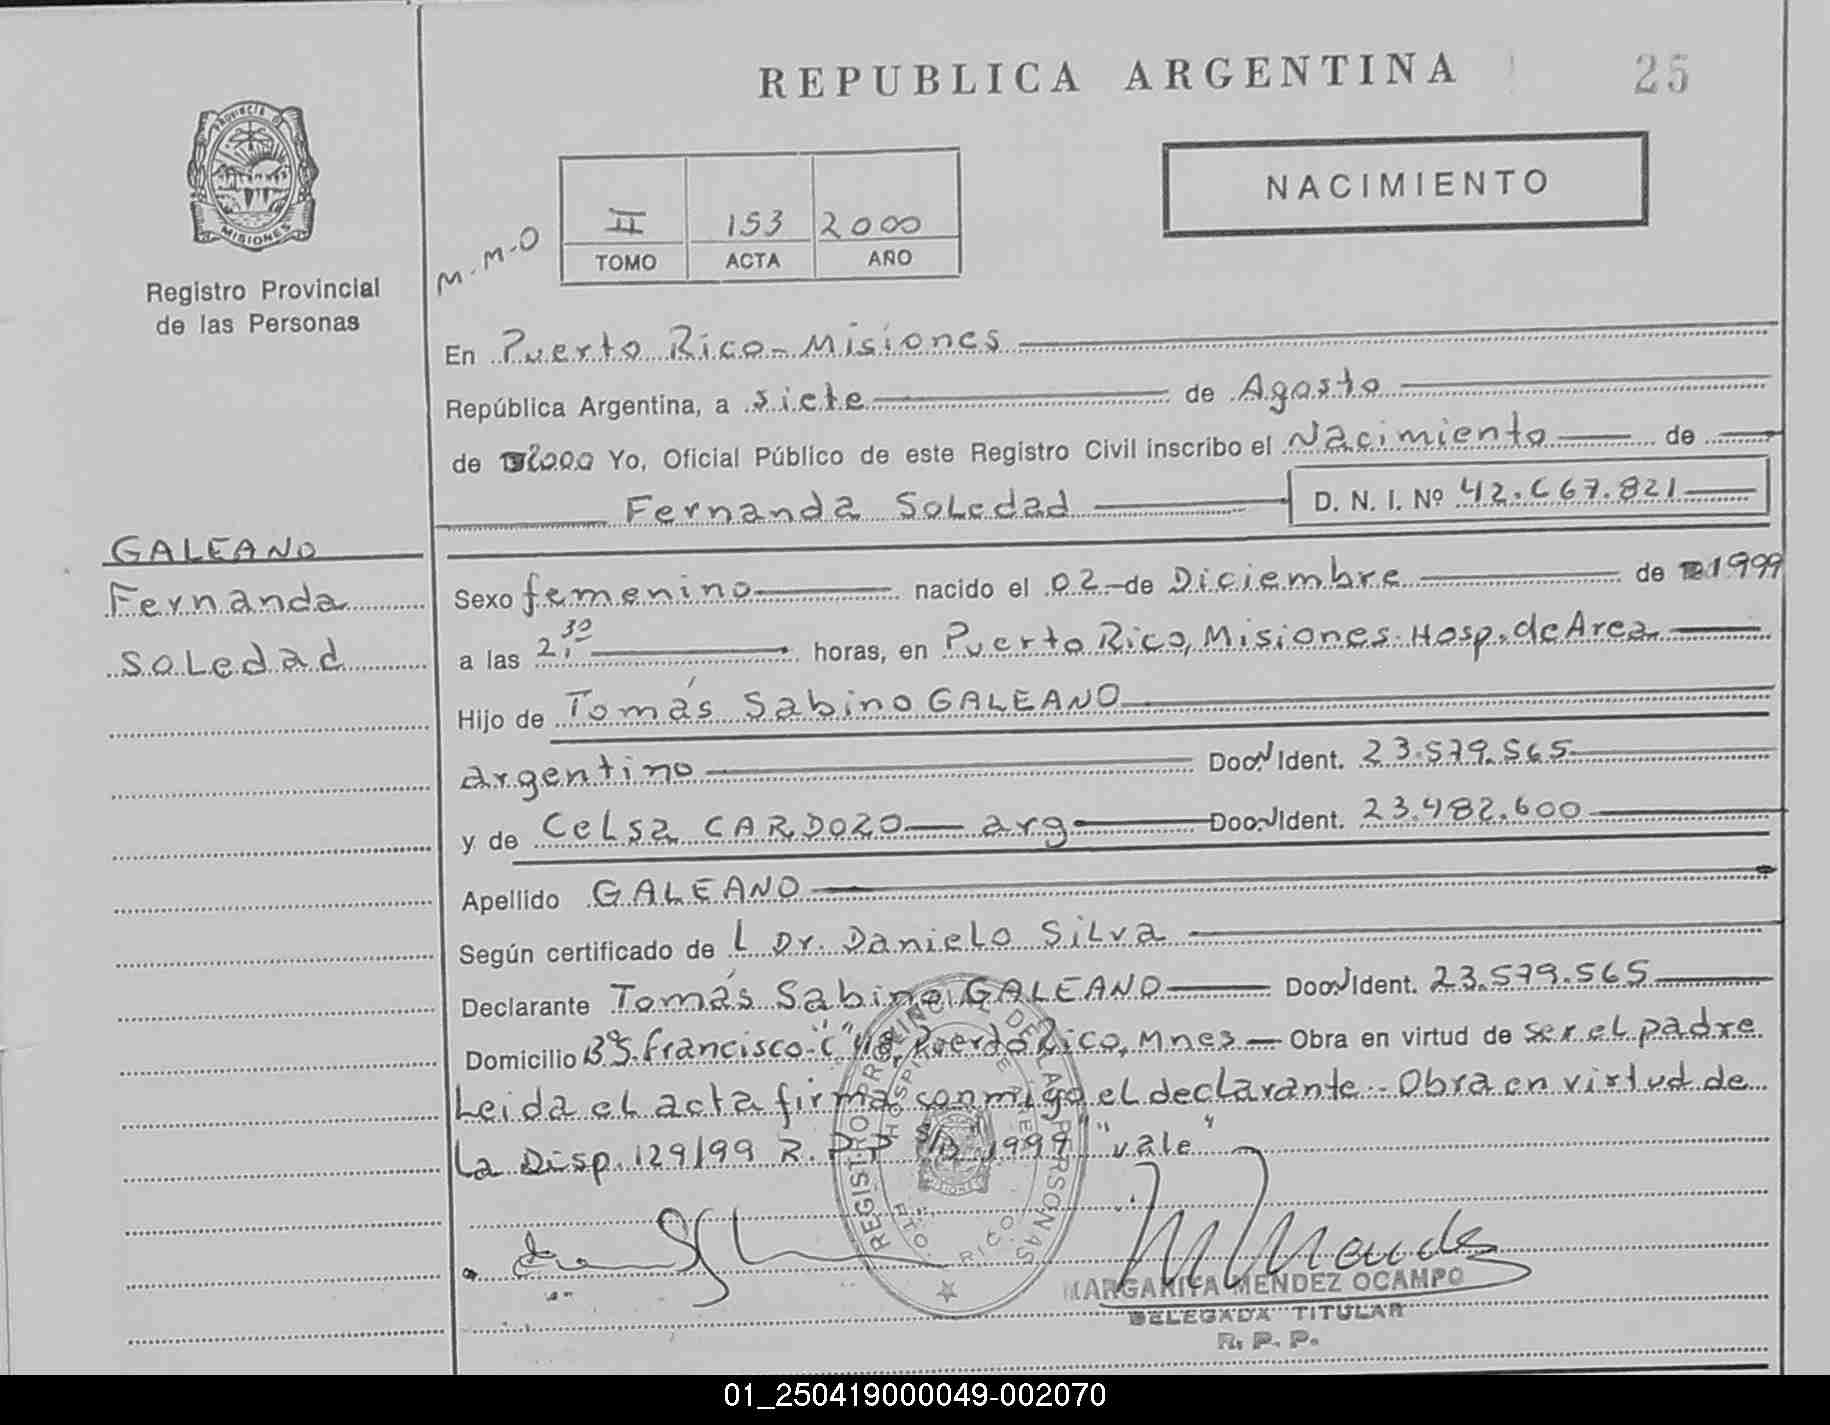 REPUBLICA ARGENTINA
25
PROVINCIA D
MISIONES
Registro Provincial
de las Personas
NACIMIENTO
M.M.O
II 153 2000
TOMO ACTA AÑO
En Puerto Rico - Misiones
República Argentina, a siete de Agosto
de 2000 Yo, Oficial Público de este Registro Civil inscribo el Nacimiento de
Fernanda Soledad D. N. I. Nº 42.667.821
GALEANO
Fernanda
Soledad
Sexo femenino nacido el 02 de Diciembre de 1999
a las 2,30 horas, en Puerto Rico, Misiones. Hosp. de Area
Hijo de Tomás Sabino GALEANO
argentino Doc. N Ident. 23.579.565
y de Celsa CARDOZO — arg Doc. N Ident. 23.482.600
Apellido GALEANO
Según certificado de L Dr. Danielo Silva
Declarante Tomás Sabino GALEANO Doc. N Ident. 23.579.565
Domicilio Bº S. Francisco "C" Puerto Rico, Mnes — Obra en virtud de ser el padre
Leida el acta firma conmigo el declarante - Obra en virtud de
La Disp. 129/99 R.P.P 1999 "vale"
REGISTRO PROVINCIAL DE LAS PERSONAS
HOSPITAL DE AREA
PTO. RICO
MISIONES
MARGARITA MENDEZ OCAMPO
DELEGADA TITULAR
R. P. P.
01_250419000049-002070